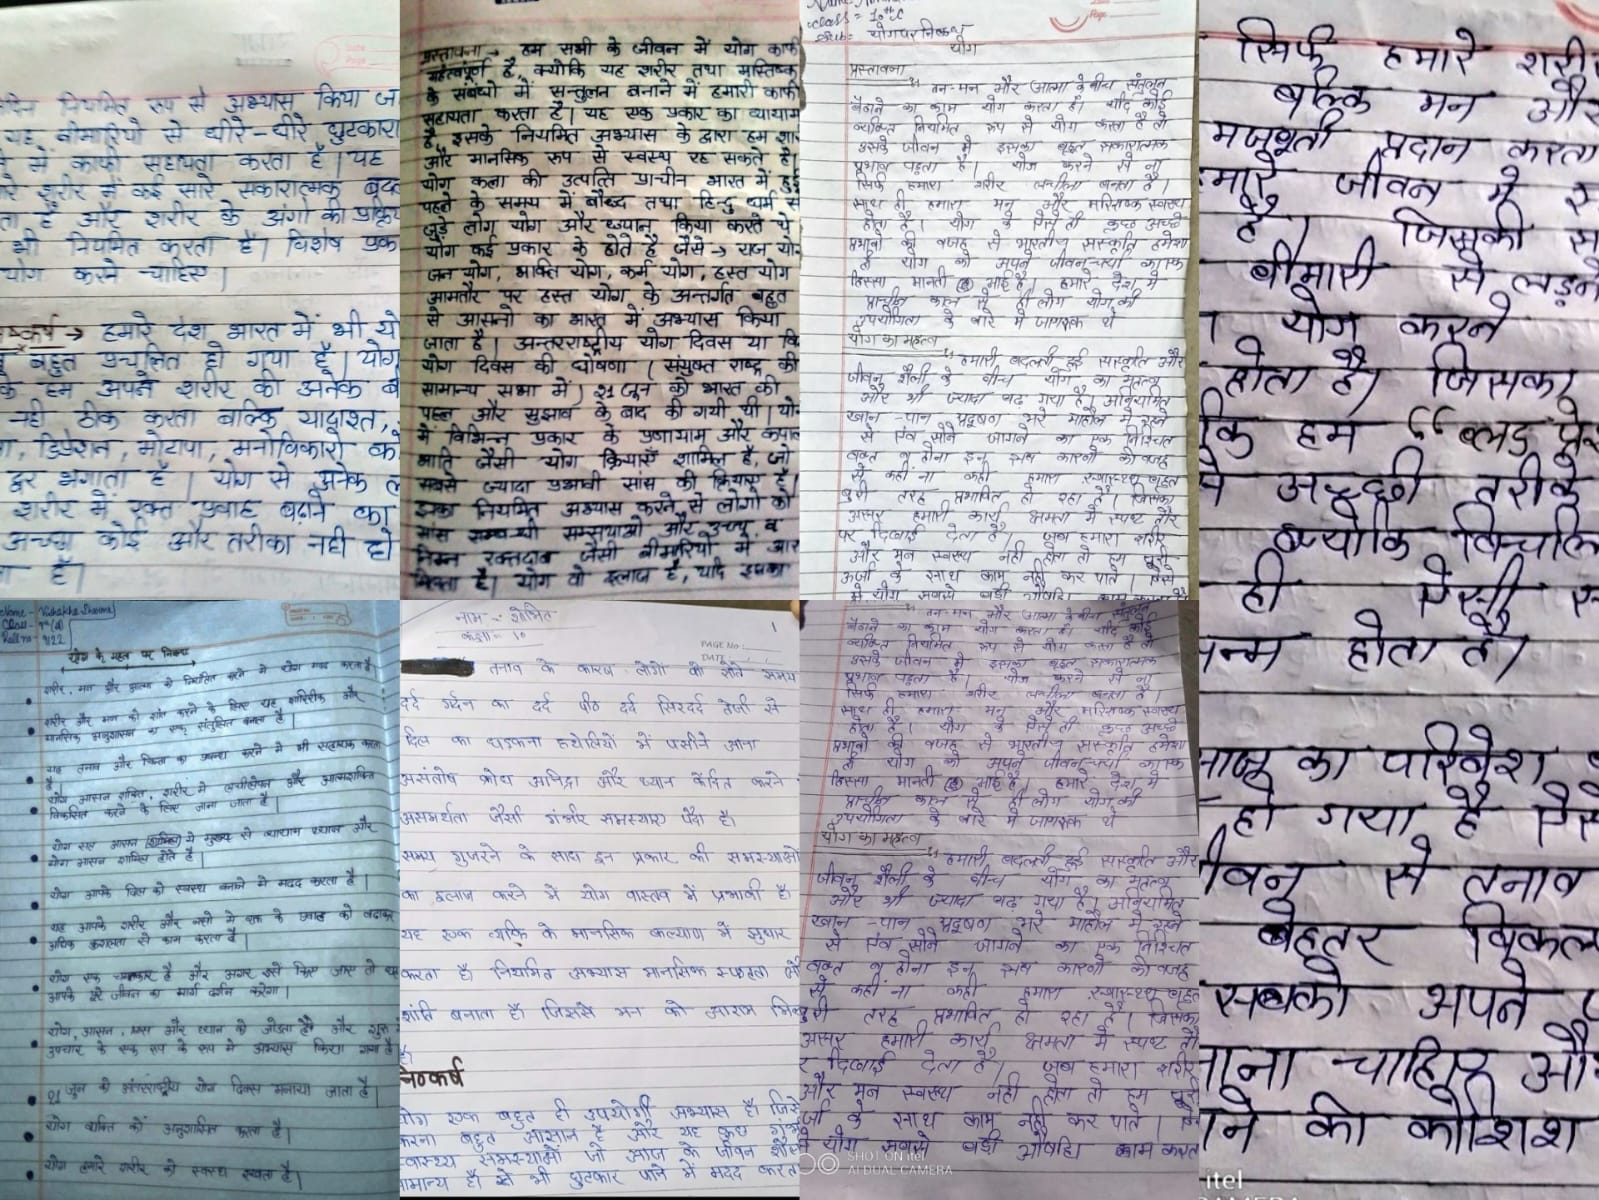 नियमित रूप से अभ्यास किया ज
यह बीमारियों से धीरे-धीरे छुटकारा
में काफी सहायता करता है। यह
शरीर में कई सारे सकारात्मक बद
ता है और शरीर के अंगो की प्रक्रिय
भी नियमित करता है। विशेष प्रक
योग करने चाहिए।
ष्कर्ष → हमारे देश भारत में भी यो
बहुत प्रचलित हो गया है। योग
के हम अपने शरीर की अनेक ब
नही ठीक करता बल्कि याद्दाश्त,
डिप्रेशन, मोटापा, मनोविकारो को
दूर भगाता है। योग से अनेक ल
शरीर में रक्त प्रवाह बढ़ाने का
अच्छा कोई और तरीका नही हो
है।
प्रस्तावना → हम सभी के जीवन में योग काफी
महत्वपूर्ण है, क्योंकि यह शरीर तथा मस्तिष्क
के संबंधो में सन्तुलन बनाने में हमारी काफी
सहायता करता है। यह एक प्रकार का व्यायाम
है, इसके नियमित अभ्यास के द्वारा हम शार
और मानसिक रूप से स्वस्थ रह सकते है।
योग कला की उत्पत्ति प्राचीन भारत में हुई
पहले के समय में बौध्द तथा हिन्दु धर्म से
जुड़े लोग योग और ध्यान किया करते थे
योग कई प्रकार के होते है जैसे → राज यो
जन योग, भक्ति योग, कर्म योग, हस्त योग
आमतौर पर हस्त योग के अन्तर्गत बहुत
से आसनो का भारत में अभ्यास किया
जाता है। अन्तरराष्ट्रीय योग दिवस या वि
योग दिवस की घोषणा (संयुक्त राष्ट्र की
सामान्य सभा में) 21 जून को भारत की
पहल और सुझाव के बाद की गयी थी। यो
में विभिन्न प्रकार के प्राणायाम और कपाल
भाति जैसी योग क्रियाएँ शामिल है, जो
सबसे ज्यादा प्रभावी सांस की क्रियाए है।
इनका नियमित अभ्यास करने से लोगों को
सांस सम्बन्धी समस्याओ और उच्च व
निम्न रक्तदाब जैसी बीमारियों में आर
मिलता है। योग वो इलाज है, यदि इसका
class = 10th C
योग पर निबन्ध
योग
प्रस्तावना
तन-मन और आत्मा के बीच संतुलन
बैठाने का काम योग करता है। यदि कोई
व्यक्ति नियमित रूप से योग करता है तो
उसके जीवन में इसका बहुत सकारात्मक
प्रभाव पड़ता है। योग करने से ना
सिर्फ हमारा शरीर लचीला बनता है।
साथ ही हमारा मन और मस्तिष्क स्वस्थ
होता है। योग के ऐसे ही कुछ अच्छे
प्रभावों की वजह से भारतीय संस्कृति हमेशा
से योग को अपने जीवन-चर्या का एक
हिस्सा मानती आई है। हमारे देश में
प्राचीन काल से ही लोग योग की
उपयोगिता के बारे में जागरूक थे
योग का महत्व
हमारी बदलती हुई संस्कृति और
जीवन शैली के बीच योग का महत्व
और भी ज्यादा बढ़ गया है। अनियमित
खान-पान प्रदूषण भरे माहौल में रहने
से एवं सोने जागने का एक निश्चित
वक्त न होना इन सब कारणों की वजह
से कहीं ना कही हमारा स्वास्थ्य बहुत
बुरी तरह प्रभावित हो रहा है। जिसका
असर हमारी कार्य क्षमता में स्पष्ट तौर
पर दिखाई देता है। जब हमारा शरीर
और मन स्वस्थ नही होता तो हम पूरी
ऊर्जा के साथ काम नहीं कर पाते।
में योग सबसे बड़ी औषधि काम करता
सिर्फ हमारे शरी
बल्कि मन और
मजबूती प्रदान करता
हमारे जीवन में स
है। जिसकी स
बीमारी से लड़ने
योग करने
होता है। जिसका
कि हम "ब्लड प्रे
से अच्छी तरीके
क्योकि विचलि
ही ऐसी स
न्म होता है।
आज का परिवेश
हो गया है
जीवन से तनाव
बेहतर विकल्
सबको अपने
नाना चाहिए औ
ने की कोशिश
Name - Vishakha Sharma
Class - 9th (a)
Roll no - 9122
योग के महत्व पर निबन्ध
शरीर, मन और आत्मा को नियंत्रित करने मे योग मदद करता है
शरीर और मन को शांत करने के लिए यह शारीरिक और
मानसिक अनुशासन का एक संतुलित बनाता है।
यह तनाव और चिंता का प्रबन्ध करने मे भी सहायक करता
है।
योग आसन शक्ति, शरीर मे लचीलेपन और आत्मशक्ति
विकसित करने के लिए जाना जाता है।
योग आसन शामिल होते है।
योग आपके दिल को स्वस्थ बनाने मे मदद करता है।
यह आपके शरीर और नसों मे रक्त के प्रवाह को बढ़ाकर
अधिक कुशलता से काम करता है।
योग एक चमत्कार है और अगर इसे किया जाए तो यह
आपके पूरे जीवन का मार्ग दर्शन करेगा।
योग, आसन, प्राण और ध्यान को जोड़ता है और
उपचार के एक रूप के रूप मे अभ्यास किया गया है
21 जून को अंतरराष्ट्रीय योग दिवस मनाया जाता है।
योग व्यक्ति को अनुशासित करता है।
योग हमारे शरीर को स्वस्थ रखता है।
नाम - शोभित
कक्षा - 10
1
PAGE No.:
DATE
तनाव के कारण लोगों को सोते समय
दर्द गर्दन का दर्द पीठ दर्द सिरदर्द तेजी से
दिल का धड़कना हथेलियों में पसीने आना
असंतोष क्रोध अनिद्रा और ध्यान केंद्रित करने
असमर्थता जैसी गंभीर समस्याए पैदा है।
समय गुजरने के साथ इन प्रकार की समस्याओ
का इलाज करने में योग वास्तव में प्रभावी है
यह एक व्यक्ति के मानसिक कल्याण में सुधार
करता है नियमित अभ्यास मानसिक स्पष्टता और
शांति बनाता है। जिससे मन को आराम मिल
है।
निष्कर्ष
योग एक बहुत ही उपयोगी अभ्यास है। जिसे
करना बहुत आसान है और यह कुछ गंभी
स्वास्थ्य समस्याओं जो आज के जीवन शैली
सामान्य है। से भी छुटकार पाने में मदद करता
तन-मन और आत्मा के बीच संतुलन
बैठाने का काम योग करता है। यदि कोई
व्यक्ति नियमित रूप से योग करता है तो
उसके जीवन में इसका बहुत सकारात्मक
प्रभाव पड़ता है। योग करने से ना
सिर्फ हमारा शरीर लचीला बनता है।
साथ ही हमारा मन और मस्तिष्क स्वस्थ
होता है। योग के ऐसे ही कुछ अच्छे
प्रभावों की वजह से भारतीय संस्कृति हमेशा
से योग को अपने जीवन-चर्या का एक
हिस्सा मानती आई है। हमारे देश मे
प्राचीन काल से ही लोग योग की
उपयोगिता के बारे में जागरूक थे
योग का महत्व
हमारी बदलती हुई संस्कृति और
जीवन शैली के बीच योग का महत्व
और भी ज्यादा बढ़ गया है। अनियमित
खान-पान प्रदूषण भरे माहौल में रहने
से एवं सोने जागने का एक निश्चित
वक्त न होना इन सब कारणों की वजह
से कहीं ना कही हमारा स्वास्थ्य बहुत
बुरी तरह प्रभावित हो रहा है। जिसका
असर हमारी कार्य क्षमता में स्पष्ट तौ
र दिखाई देता है। जब हमारा शरीर
और मन स्वस्थ नही होता तो हम पूरी
र्जा के साथ काम नहीं कर पाते।
योग सबसे बड़ी औषधि काम करता
SHOT ON itel
AI DUAL CAMERA
itel
CAMERA